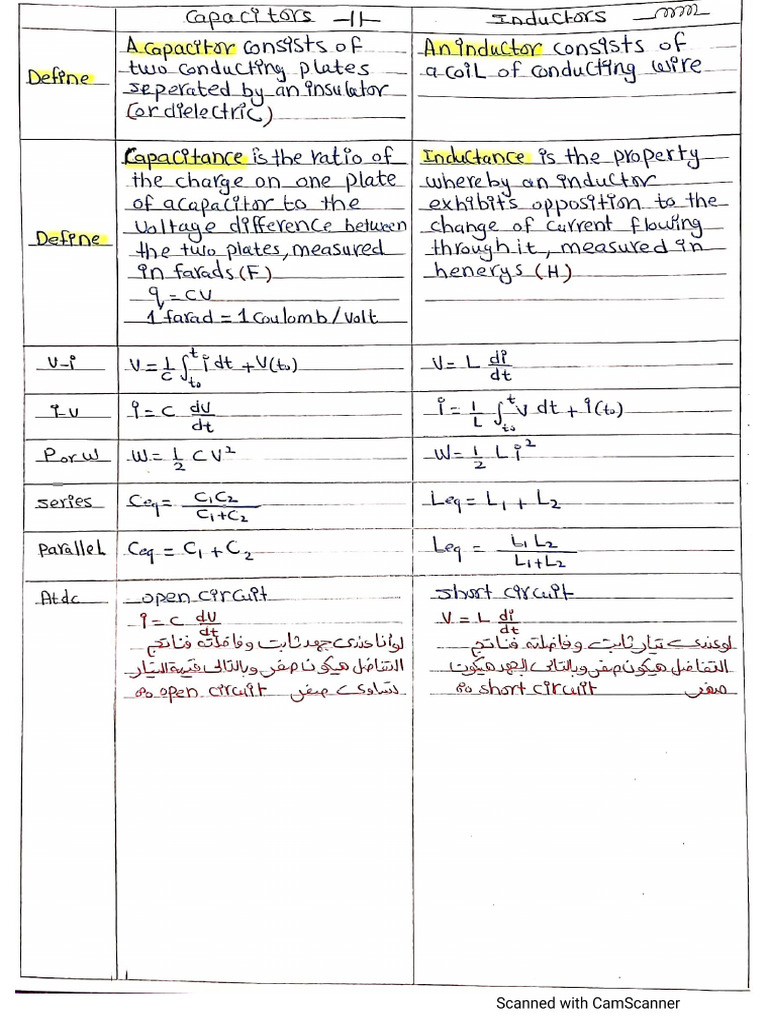 Capacitors
Inductors
Define
A capacitor consists of
two conducting plates
seperated by an insulator
(or dielectric)
An inductor consists of
a coil of conducting wire
Define
Capacitance is the ratio of
the charge on one plate
of a capacitor to the
voltage difference between
the two plates, measured
in farads (F)
q = CV
1 farad = 1 Coulomb/Volt
Inductance is the property
whereby an inductor
exhibits opposition to the
change of current flowing
through it, measured in
henerys (H)
V-i
V = 1/C ∫_{t₀}^{t} i dt + V(t₀)
V = L di/dt
i-v
i = C dv/dt
i = 1/L ∫_{t₀}^{t} v dt + i(t₀)
P or W
W = 1/2 CV²
W = 1/2 L i²
series
Ceq = C₁C₂/C₁+C₂
Leq = L₁ + L₂
parallel
Ceq = C₁ + C₂
Leq = L₁L₂/L₁+L₂
At dc
open circuit
i = C dv/dt
لو أنا عندى جهد ثابت و فاضلته فناتج
التفاضل هيكون صفر وبالتالى قيمة التيار
تساوى صفر ∴ open circuit
short circuit
V = L di/dt
لو عندى تيار ثابت وفاضلته فناتج
التفاضل هيكون صفر وبالتالى الجهد هيكون
صفر ∴ short circuit
Scanned with CamScanner